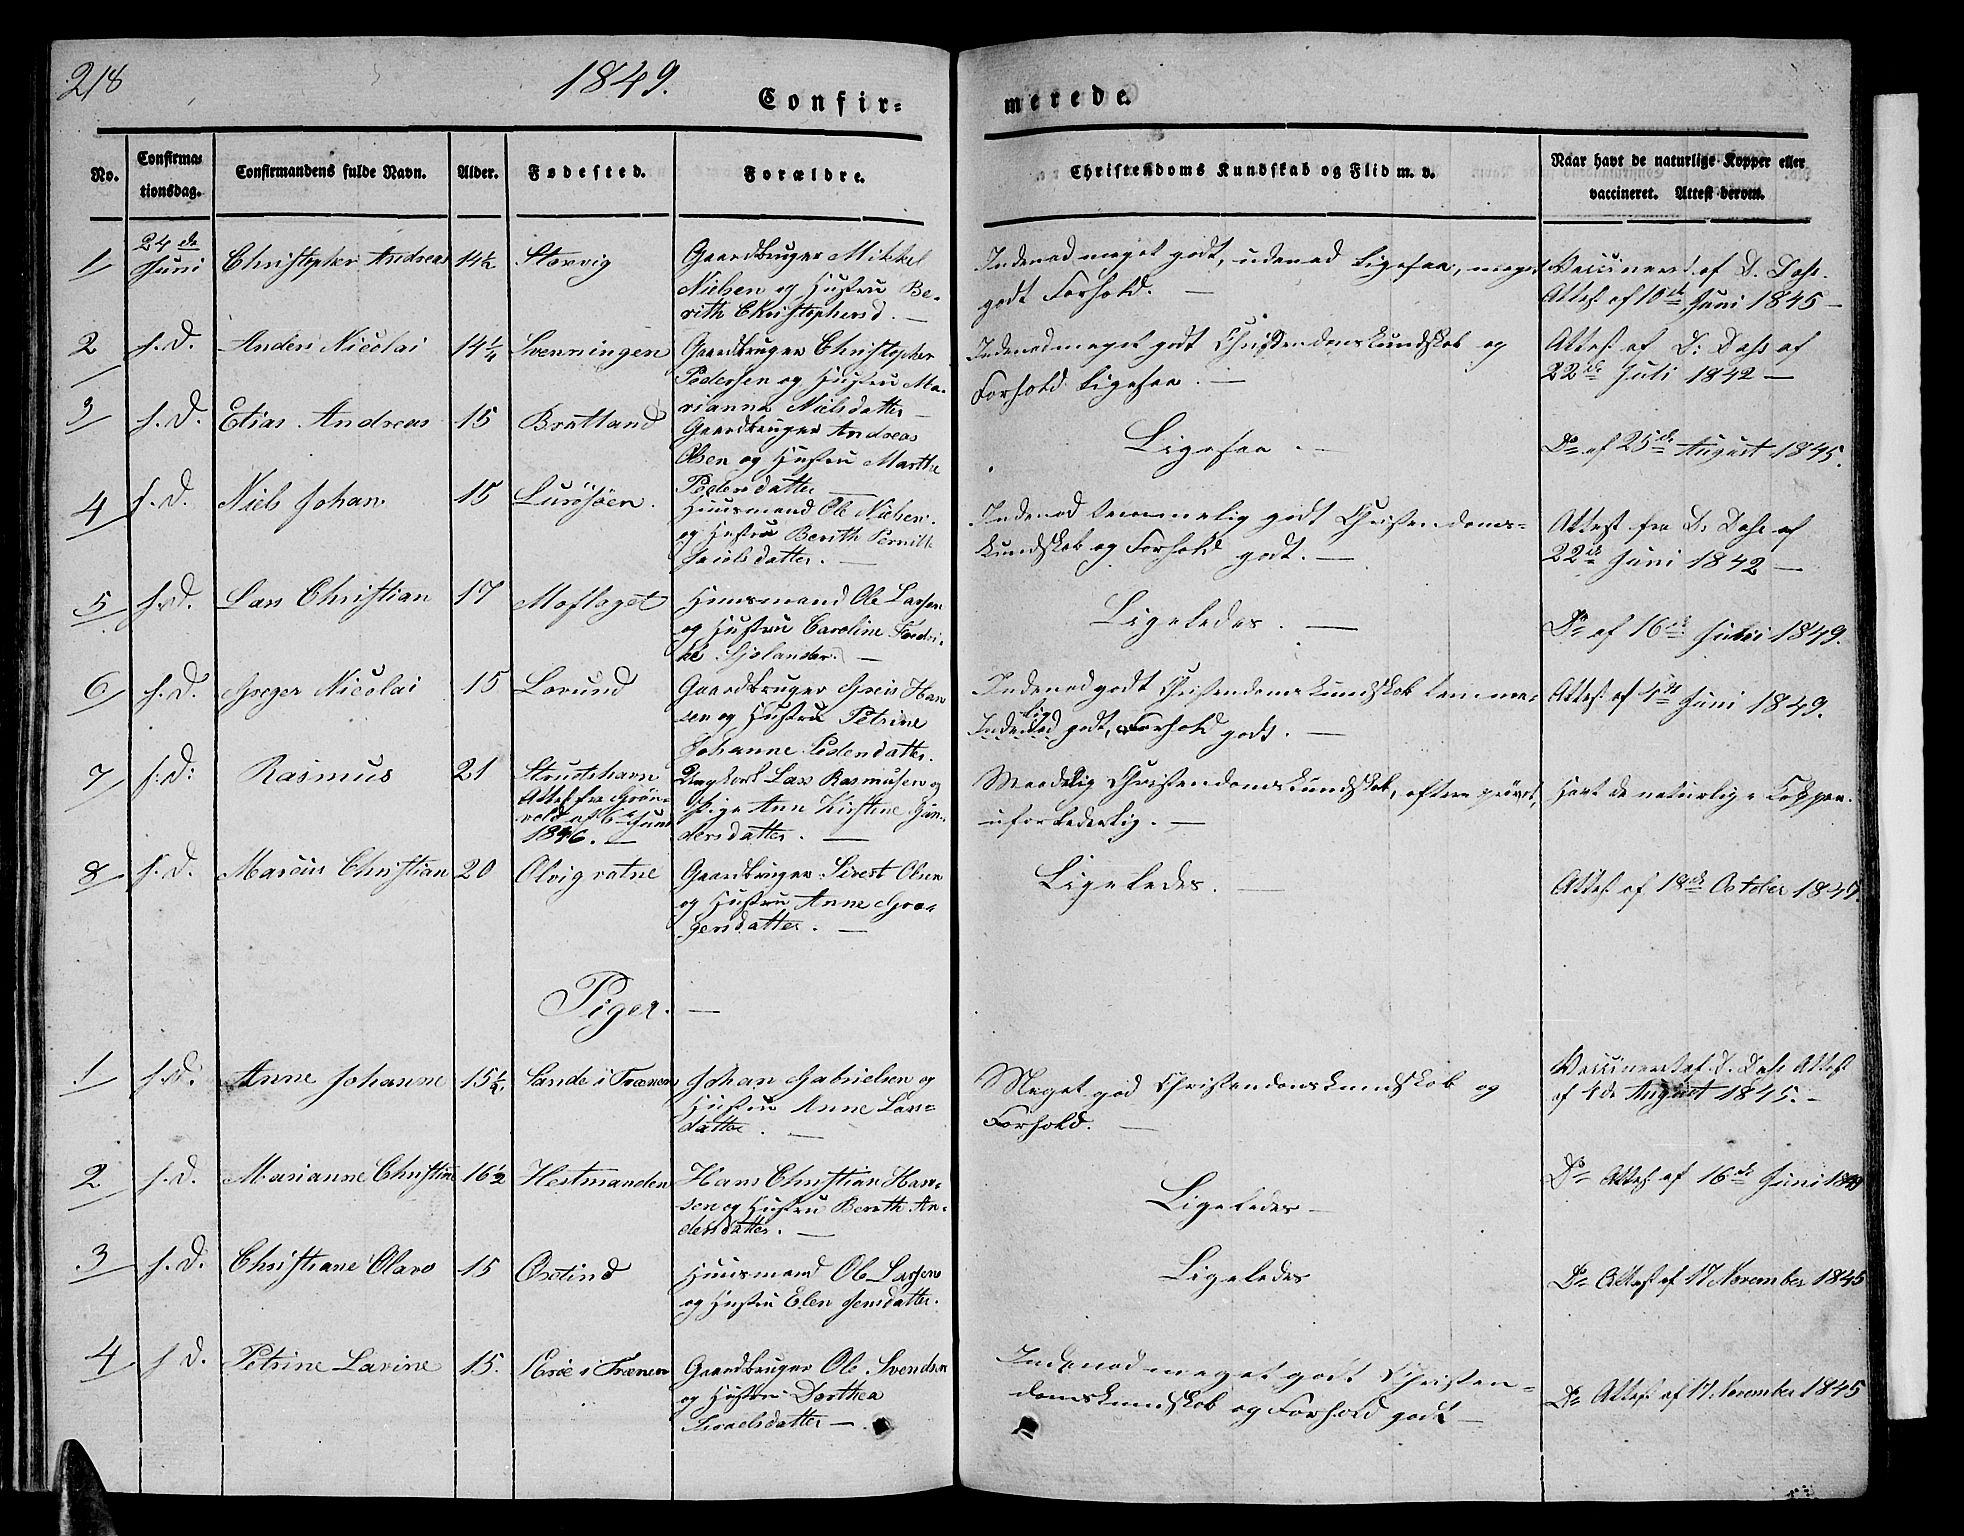 218
1849.
Confir=
merede.
No.
Confirma=
tionsdag.
Confirmandens fulde Navn.
Alder.
Fødested.
Forældre.
Christendoms Kundskab og Flid m. v.
Naar havt de naturlige Kopper eller
vaccineret. Attest derom.
1
24de
Juni
Christopher Andreas
14½
Storvig
Gaardbruger Mikkel
Nielsen og Hustru Be-
rith Christophersd. —
Indenad meget godt, udenad Ligesaa, meget
godt Forhold. —
Vaccineret af D. Dahl.
Attest af 10de Juni 1845 —
2
s. D.
Anders Nicolai
14¼
Svenningen
Gaardbruger Christopher
Pedersen og Hustru Ma-
rianna Nielsdatter —
Indenad meget godt Christendomskundskab og
Forhold Ligesaa. —
Attest af D: Dahl af
22de Juli 1842 —
3
s. D.
Elias Andreas
15
Bratland
Gaardbruger Andreas
Olsen og Hustru Marthe
Pedersdatter —
Ligesaa. —
Do af 25de August 1845.
4
s. D.
Niels Johan
15
Lurösöen.
Huusmand Ole Nielsen
og Hustru Berith Pernille
datter. —
Indenad temmelig godt Christendoms-
kundskab og Forhold godt. —
Attest fra D. Dahl af
22de Juni 1842 —
5
s. D.
Lars Christian
17
Moflaget
Huusmand Ole Larsen
og Hustru Caroline Fredri-
ke Sjolander. —
Ligeledes. —
Do af 16de Juni 1849.
6
s. D.
Greger Nicolai
15
Lovund
Gaardbruger Greis Han
sen og Hustru Petrine
Johanne Pedersdatter.
Indenad godt Christendomskundskab temme-
lig
Indenad godt, Forhold godt. —
Attest af 4de Juni 1849.
7
s: D:
Rasmus
21
Strudshavn
Attest fra Grön-
vold af 6te Juni
1846. —
Ungkarl Lars Rasmussen og
Pige Ann Kirstine Gun-
dersdatter. —
Maadelig Christendomskundskab, oftere prøvet,
uforbederlig. —
Havt de naturlige Kopper.
8
s. D.
Marcus Christian
20
Olvigvatne
Gaardbruger Sivert Olsen
og Hustru Anne Gre-
gersdatter. —
Ligeledes. —
Attest af 18de October 1847.
Piger. —
1
s. D.
Anne Johanne
15½
Sande i Trænen
Johan Gabrielsen og
Hustru Anne Lars-
datter. —
Meget god Christendomskundskab og
Forhold. —
Vaccineret af D. Dahl Attest
af 4de August 1845. —
2
s. D.
Marianne Christine
16½
Hestmanden
Hans Christian Han-
sen og Hustru Berith An-
dersdatter. —
Ligeledes —
Do Attest af 16de Juni 1849
3
s. D.
Christiane Olava
15
Qvitind
Huusmand Ole Larsen
og Hustru Elen Jensdatter.
Ligeledes
Do Attest af 17 November 1845
4
s D.
Petrine Lavine
15.
i Trænen
Gaardbruger Ole Svendsen
og Hustru Dorthea
Israelsdatter —
Indenad meget godt Christen-
domskundskab og Forhold godt —
Do Attest af 17. November 1845